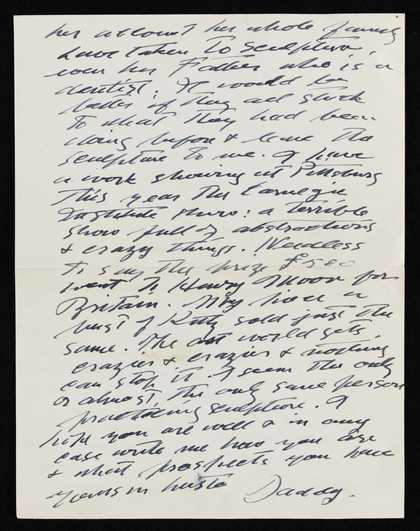 her account her whole family
have taken to sculpture,
even her Father who is a
dentist: It would be
better if they all stuck
to what they had been
doing before & leave the
sculpture to me. I have
a work showing at Pittsburg
this year the Carnegie
Institute show: a terrible
show full of abstractions
& crazy things. Needless
to say the prize
went to Henry Moore for
Britain. My piece a
bust of Kitty sold just the
same. The art world gets
crazier & crazier & nothing
can stop it. I seem the only
or almost, the only sane person
practicing sculpture. I
hope you are well & in any
case write me how you are
& what prospects you have
Yours in haste Daddy.